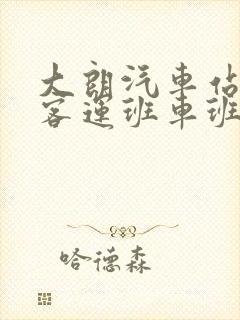 大朗汽車佔
客運班車班
哈德森